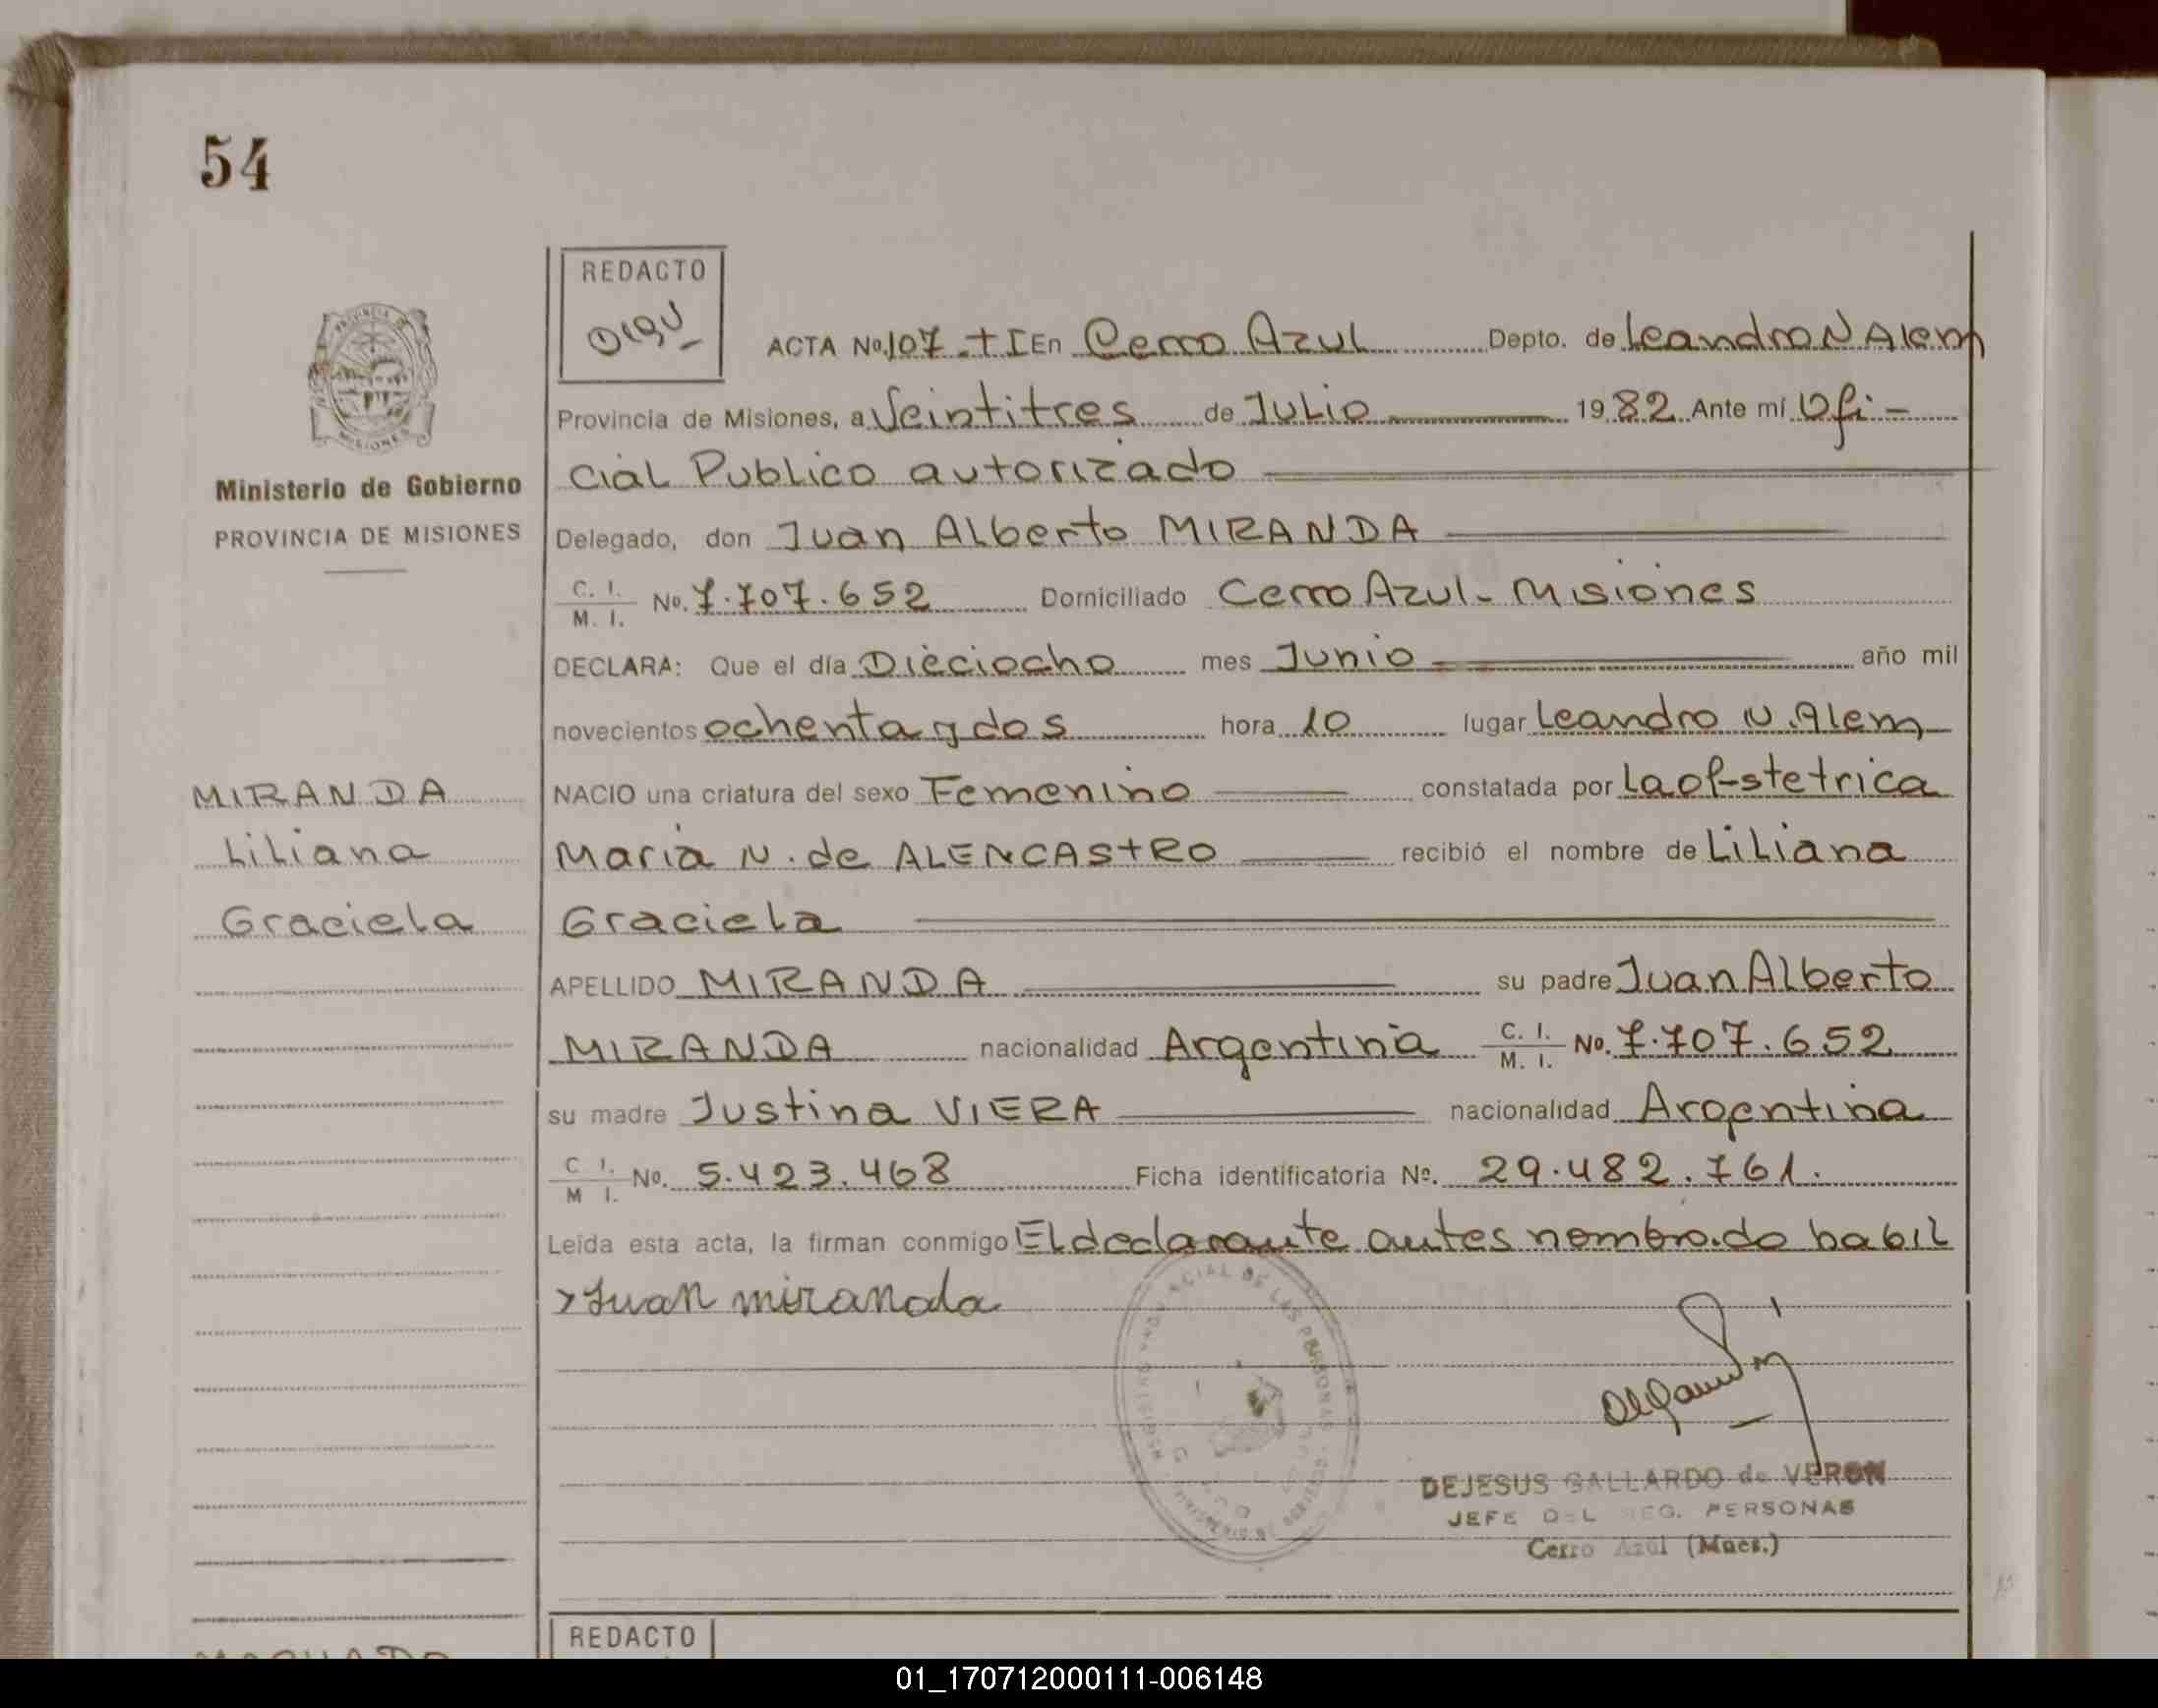 54
REDACTO
ACTA No. 107.-tI En Cerro Azul Depto. de Leandro N Alem
Provincia de Misiones, a Veintitres de Julio 1982 Ante mí Ofi-
cial Publico autorizado
Ministerio de Gobierno
PROVINCIA DE MISIONES
Delegado, don Juan Alberto MIRANDA
C. I. / M. I. No. 7.707.652 Domiciliado Cerro Azul - Misiones
DECLARA: Que el día Dieciocho mes Junio año mil
novecientos ochenta y dos hora 10 lugar Leandro N. Alem
MIRANDA
Liliana
Graciela
NACIO una criatura del sexo Femenino constatada por La obstetrica
Maria N. de ALENCASTRO recibió el nombre de Liliana
Graciela
APELLIDO MIRANDA su padre Juan Alberto
MIRANDA nacionalidad Argentina C. I. / M. I. No. 7.707.652
su madre Justina VIERA nacionalidad Argentina
C. I. / M. I. No. 5.423.468 Ficha identificatoria Nº. 29.482.761.
Leída esta acta, la firman conmigo El declarante antes nombrado habil
Juan miranda
DEJESUS GALLARDO de VERON
JEFE DEL REG. PERSONAS
Cerro Azul (Mnes.)
REDACTO
01_170712000111-006148